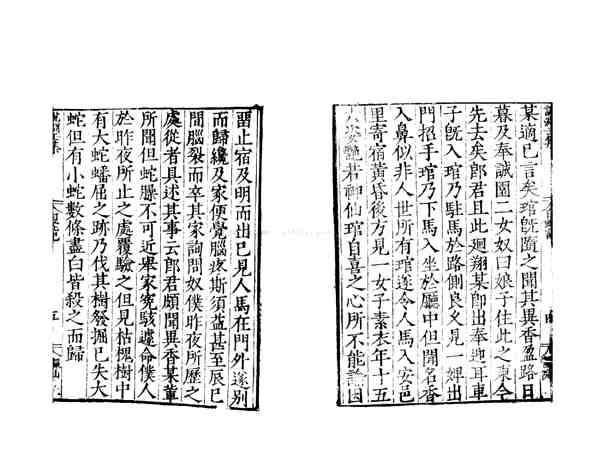 某適已言矣琯既隨之聞其異香盈路日
暮及奉誠園二女奴曰娘子住此之東今
先去矣郎君且此廻翔某即出奉迎耳車
子既入琯乃駐馬於路側良久見一婢出
門招手琯乃下馬入坐於廳中但聞名香
入鼻似非人世所有琯遂令人馬入安邑
里寄宿黃昏後方見一女子素衣年十五
六姿艷若神仙琯自喜之心所不能諭因
畱止宿及明而出已見人馬在門外遂别
而歸纔及家便覺腦疼斯須益甚至辰巳
間腦裂而卒其家詢問奴僕昨夜所歷之
處從者具述其事云郎君頗聞異香某輩
所聞但蛇臊不可近舉家寃駭遽命僕人
於昨夜所止之處覆驗之但見枯槐樹中
有大蛇蟠屈之跡乃伐其樹發掘已失大
蛇但有小蛇數條盡白皆殺之而歸